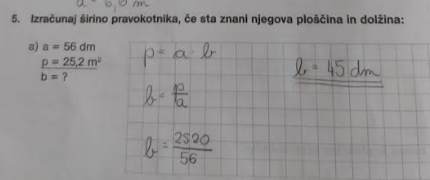 a = 6,0 m
5. Izračunaj širino pravokotnika, če sta znani njegova ploščina in dolžina:
a) a = 56 dm
p = 25,2 m²
b = ?
p = a · b
b = p/a
b = 2520/56
b = 45 dm